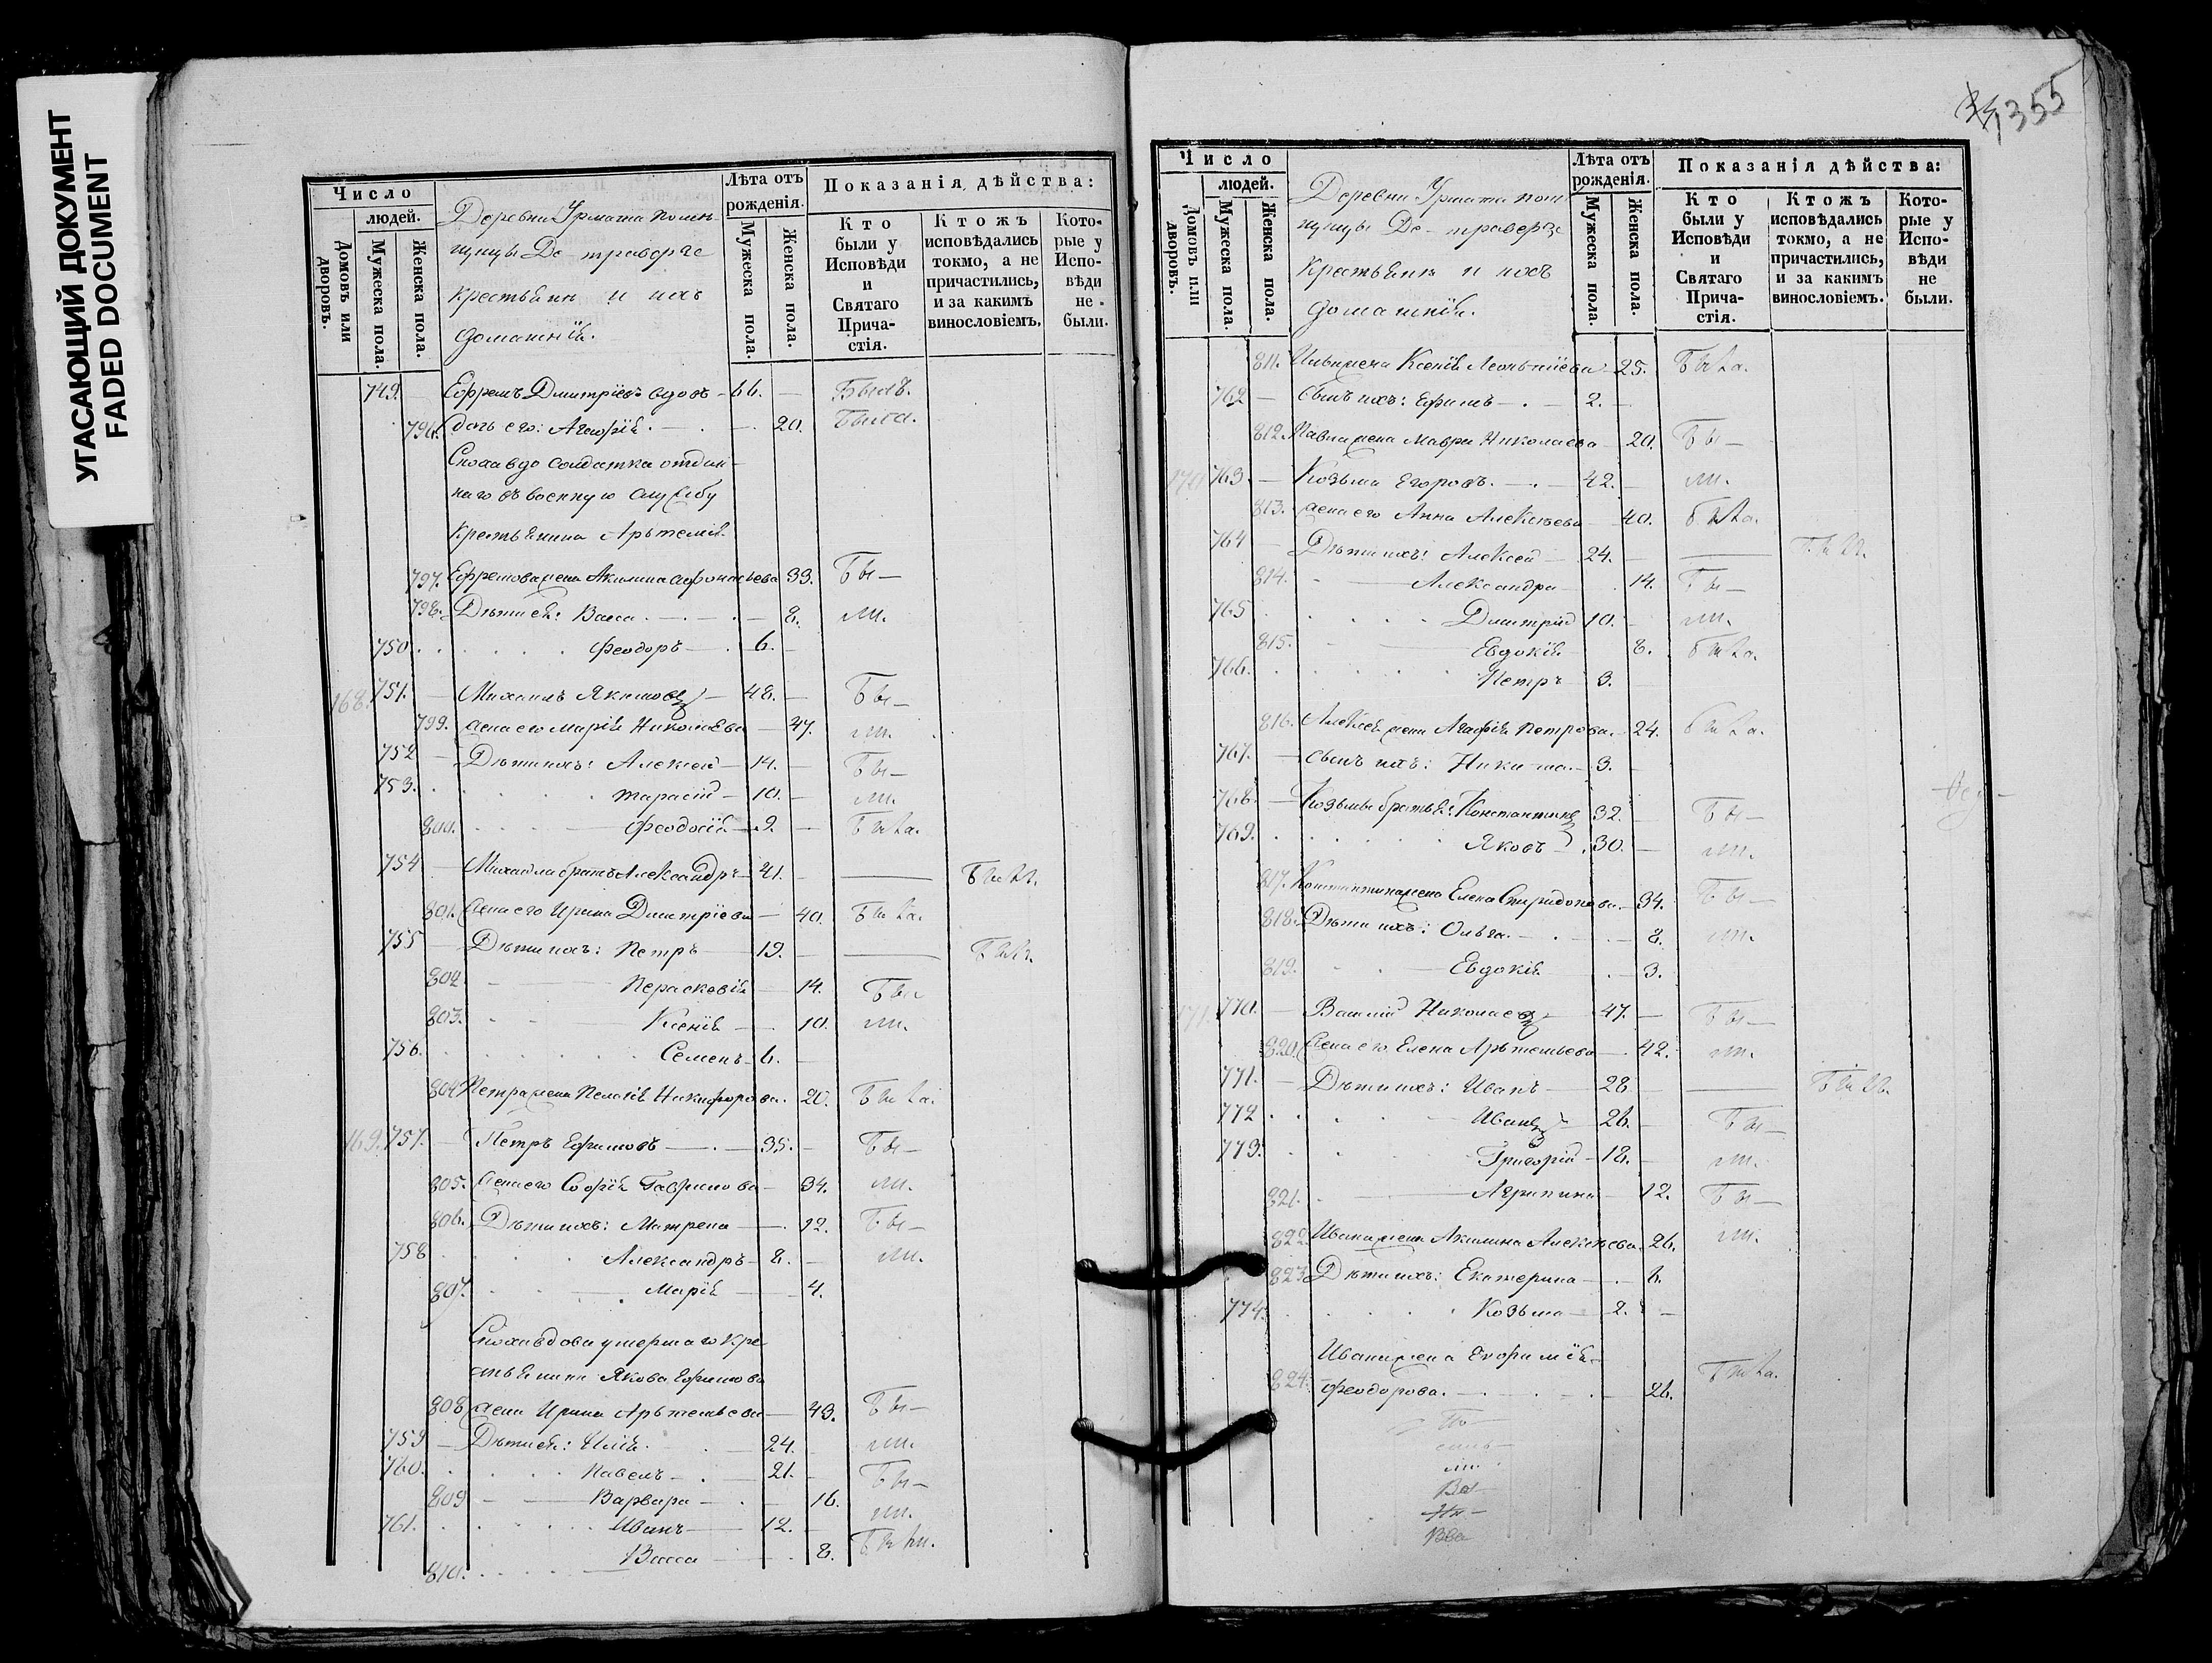 УГАСАЮЩИЙ ДОКУМЕНТ
FADED DOCUMENT
Число
людей.
Домовъ или дворовъ.
Мужеска пола.
Женска пола.
Деревни Урмата помѣ-
щицы Де-траверзе
крестьяни и ихъ
домашніи.
Лѣта отъ рожденія.
Мужеска пола.
Женска пола.
Показанія дѣйства:
Кто были у Исповѣди и Святаго Прича-стія.
Ктожъ исповѣдались токмо, а не причастились, и за какимъ винословіемъ.
Кото-рые у Испо-вѣди не были.
749. Ефремъ Дмитріевъ вдовъ 66. Былъ.
796. дочь его: Агафія 20. Была.
Снохавдо солдатка отдан-
наго въ военную службу
крестьянина Артемія
797. Ефремова жена Акилина Афонасьева 33. Бы-
798. Дѣти ея: Васса 8. ли.
750. Феодоръ 6.
168. 751. Михаилъ Якимовъ 48. Бы-
799. жена его Марія Николаева 47. ли.
752 Дѣти ихъ: Алексей 14. Бы-
753. Тарасій 10. ли.
800. Феодосія 9. Была.
754 Михаила братъ Александръ 41. Былъ.
801. Жена его Ирина Дмитріева 40. Была.
755 Дѣти ихъ: Петръ 19. Былъ.
802. Перасковія 14. Бы-
803. Ксенія 10. ли.
756. Семенъ 6.
804 Петра жена Пелагія Никифорова. 20. Была.
169. 757. Петръ Ефимовъ 35. Бы-
805. Жена его Софія Гаврилова 34. ли.
806. Дѣти ихъ: Матрена 12. Бы-
758 Александръ 8. ли.
807. Марія 4.
Сноха вдова умершаго кре-
стьянина Якова Ефимова
808 жена Ирина Артемьева 43. Бы-
759 Дѣти ея: Илія 24. ли.
760. Павелъ 21. Бы-
809 Варвара 16. ли.
761. Иванъ 12.
810. Васса 8.
355
Число
людей.
Домовъ или дворовъ.
Мужеска пола.
Женска пола.
Деревни Урмата пом-
щицы Де-траверзе
Крестьяни и ихъ
домашніи.
Лѣта отъ рожденія.
Мужеска пола.
Женска пола.
Показанія дѣйства:
Кто были у Исповѣди и Святаго Прича-стія.
Ктожъ исповѣдались токмо, а не причастились, и за какимъ винословіемъ.
Кото-рые у Испо-вѣди не были.
811. Ильи жена Ксенія Леонтіева 25. Была.
762 Сынъ ихъ: Ефимъ 2.
812. Павла жена Мавра Николаева 20. Бы-
170. 763. Козьма Егоровъ. 42. ли.
813. жена его Анна Алексѣева 40. была.
764 Дѣти ихъ: Алексей 24. Былъ.
814. Александра 14. Бы-
765 Дмитрій 10. ли.
815. Евдокія 8. была.
766. Петръ 3.
816. Алексея жена Агафія Петрова. 24. была.
767. Сынъ ихъ: Никита. 3.
768. Козьмы братья: Константинъ 32. Бы-
769. Яковъ 30. ли.
817. Константина жена Елена Спиридонова. 34. Бы-
818. Дѣти ихъ: Ольга. 8. ли.
819. Евдокія 3.
171. 770. Василій Николаевъ 47. Бы-
820. Жена его Елена Артемьева 42. ли.
771. Дѣти ихъ: Иванъ 28 Былъ.
772 Иванъ 26. Бы-
773. Григорій 18. ли.
821. Агрипина 12. Бы-
822 Ивана жена Акилина Алексѣева. 26. ли.
823 Дѣти ихъ: Екатерина 6.
774. Козьма 2.
Ивана жена Евфимія
824. Феодорова. 26. Была.